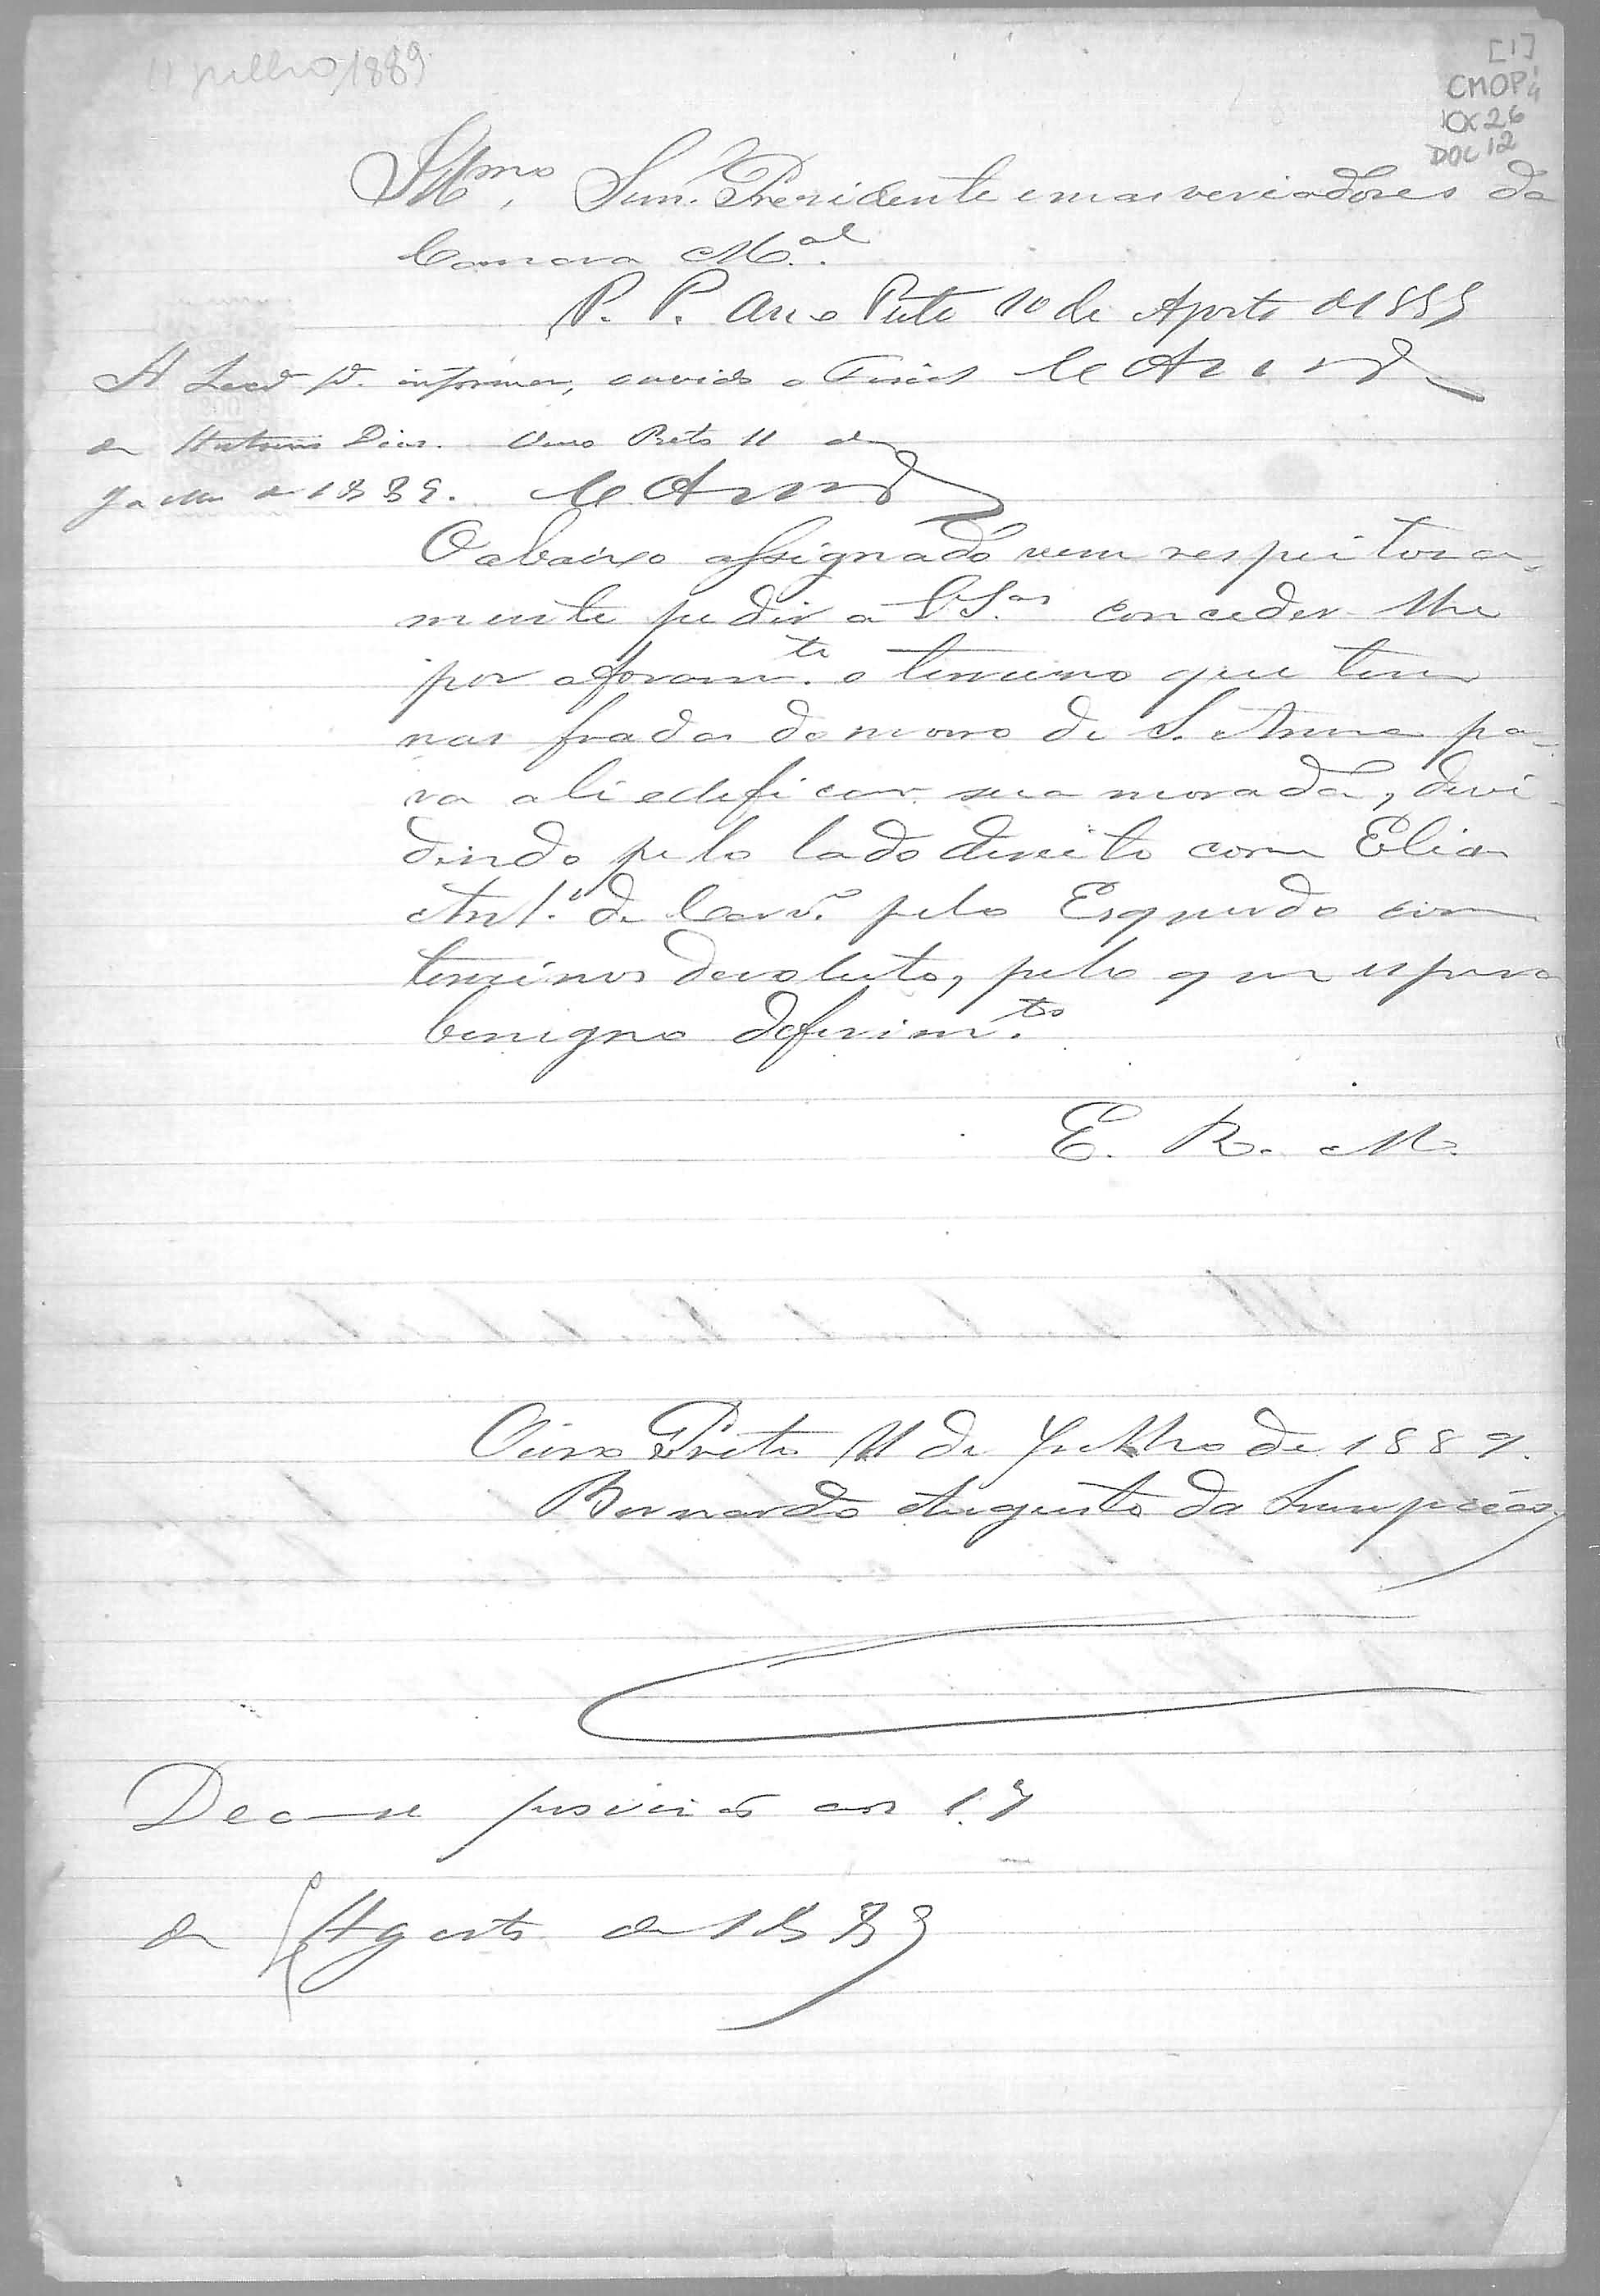 11 julho/1889
[1]
CMOP
CX 26
DOC 12
Illmo. Snr. Presidente e mais veriadores da
Camara M.al
P. P. Ouro Preto 10 de Agosto de 1889
A Secc informar, ouvido o Fiscal
de Antonio Dias. Ouro Preto 11 de
Julho de 1889.
O abaixo assignado vem respeitosa-
mente pedir a VV. S.as conceder-lhe
por aforam.to o terreino que tem
nas fradas do morro de S. Anna pa-
ra ali edificar sua morada, divi-
dindo pelo lado direito com Elias
Ant.o de Carv.o pelo Esquerdo com
terreinos devoluto, pelo que espera
benigno deferim.to
E. R. M.
Ouro Preto 11 de Julho de 1889.
Bernardo Augusto da Assumpção
Deo-se provisão aos 17
de Agosto de 1889